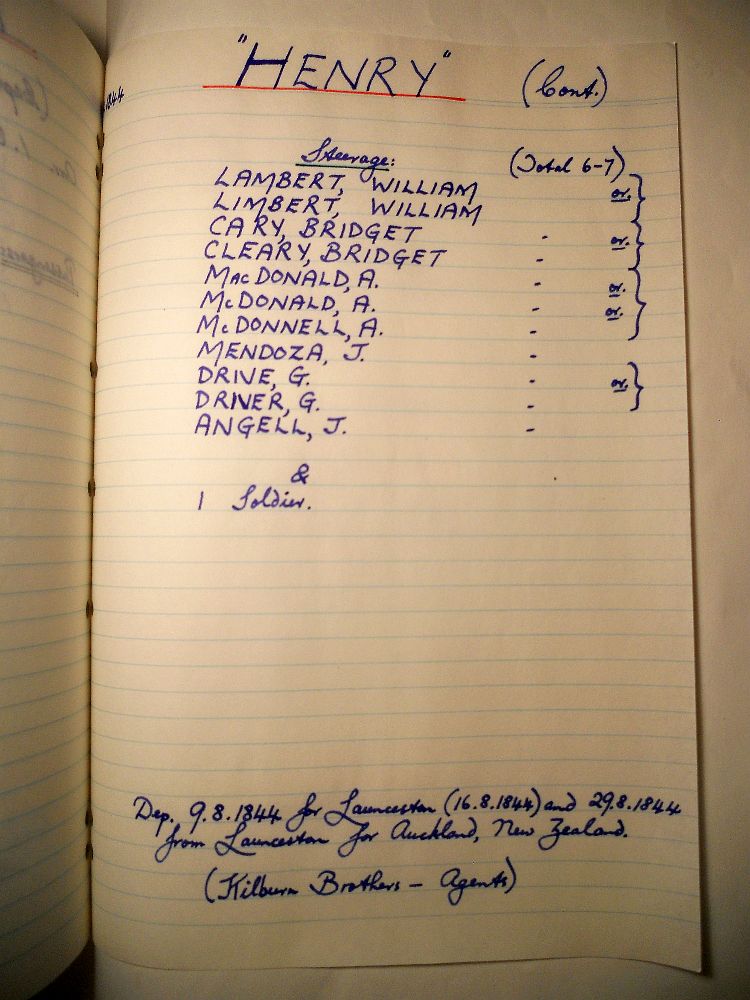 "HENRY" (Cont.)
Steerage: (Total 6-7)
LAMBERT, WILLIAM or.
LIMBERT, WILLIAM
CARY, BRIDGET - or.
CLEARY, BRIDGET -
MacDONALD, A. - or.
McDONALD, A. - or.
McDONNELL, A. -
MENDOZA, J. -
DRIVE, G. - or.
DRIVER, G. -
ANGELL, J. -
&
1 Soldier.
Dep. 9.8.1844 for Launceston (16.8.1844) and 29.8.1844
from Launceston for Auckland, New Zealand.
(Kilburn Brothers - Agents)